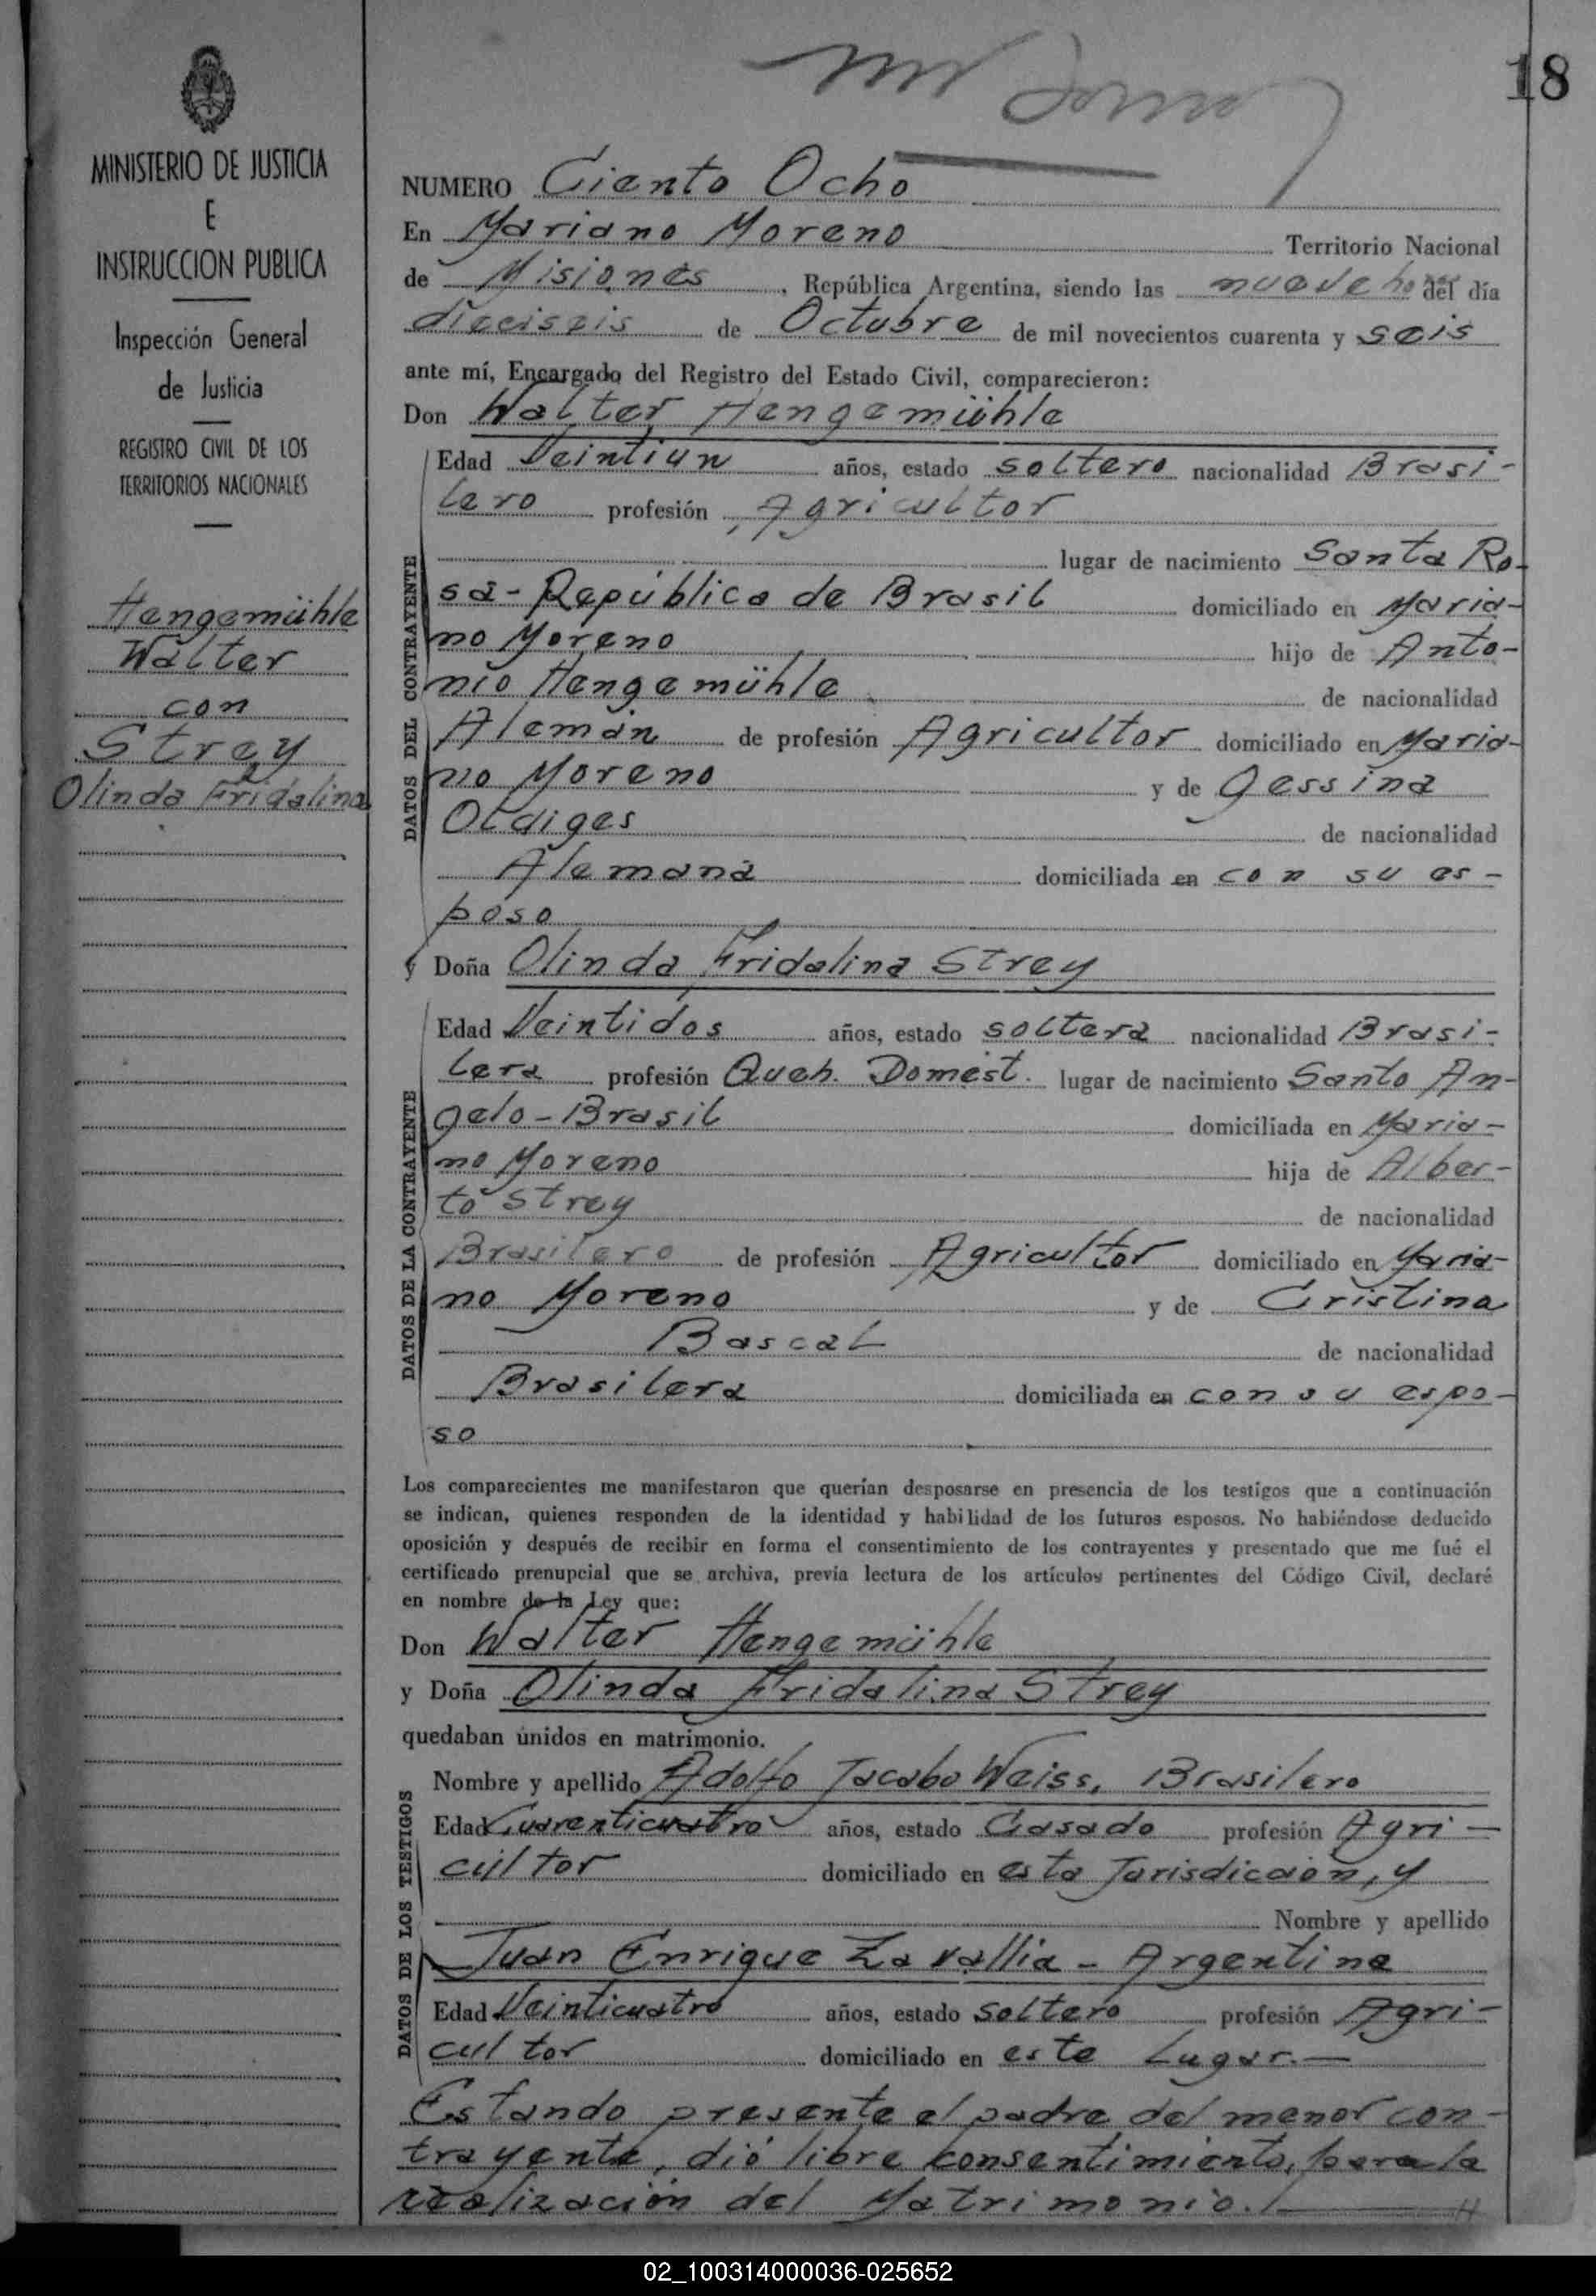 18
MINISTERIO DE JUSTICIA
E
INSTRUCCION PUBLICA
Inspección General
de Justicia
REGISTRO CIVIL DE LOS
TERRITORIOS NACIONALES
Hengemühle
Walter
con
Strey
Olinda Fridalina
NUMERO Ciento Ocho
En Mariano Moreno Territorio Nacional
de Misiones, República Argentina, siendo las nueve ho del día
dieciseis de Octubre de mil novecientos cuarenta y seis
ante mí, Encargado del Registro del Estado Civil, comparecieron:
Don Walter Hengemühle
DATOS DEL CONTRAYENTE
Edad Veintiun años, estado soltero nacionalidad Brasi-
lero profesión Agricultor
lugar de nacimiento Santa Ro-
sa-República de Brasil domiciliado en Maria-
no Moreno hijo de Anto-
nio Hengemühle de nacionalidad
Alemán de profesión Agricultor domiciliado en Maria-
no Moreno y de Gessina
Oldiges de nacionalidad
Alemana domiciliada en con su es-
poso
y Doña Olinda Fridalina Strey
DATOS DE LA CONTRAYENTE
Edad Veintidos años, estado soltera nacionalidad Brasi-
lera profesión Queh. Domést. lugar de nacimiento Santo An-
gelo-Brasil domiciliada en Maria-
no Moreno hija de Alber-
to Strey de nacionalidad
Brasilero de profesión Agricultor domiciliado en Maria-
no Moreno y de Cristina
Bascal de nacionalidad
Brasilera domiciliada en con su espo-
so
Los comparecientes me manifestaron que querían desposarse en presencia de los testigos que a continuación
se indican, quienes responden de la identidad y habilidad de los futuros esposos. No habiéndose deducido
oposición y después de recibir en forma el consentimiento de los contrayentes y presentado que me fué el
certificado prenupcial que se archiva, previa lectura de los artículos pertinentes del Código Civil, declaré
en nombre de la Ley que:
Don Walter Hengemühle
y Doña Olinda Fridalina Strey
quedaban unidos en matrimonio.
DATOS DE LOS TESTIGOS
Nombre y apellido Adolfo Jacobo Weiss, Brasilero
Edad Cuarenticuatro años, estado Casado profesión Agri-
cultor domiciliado en esta Jurisdicción, y
Nombre y apellido
Juan Enrique Zavallia - Argentino
Edad Veinticuatro años, estado soltero profesión Agri-
cultor domiciliado en este Lugar.-
Estando presente el padre del menor con-
trayente, dió libre consentimiento, para la
realización del Matrimonio.
02_100314000036-025652